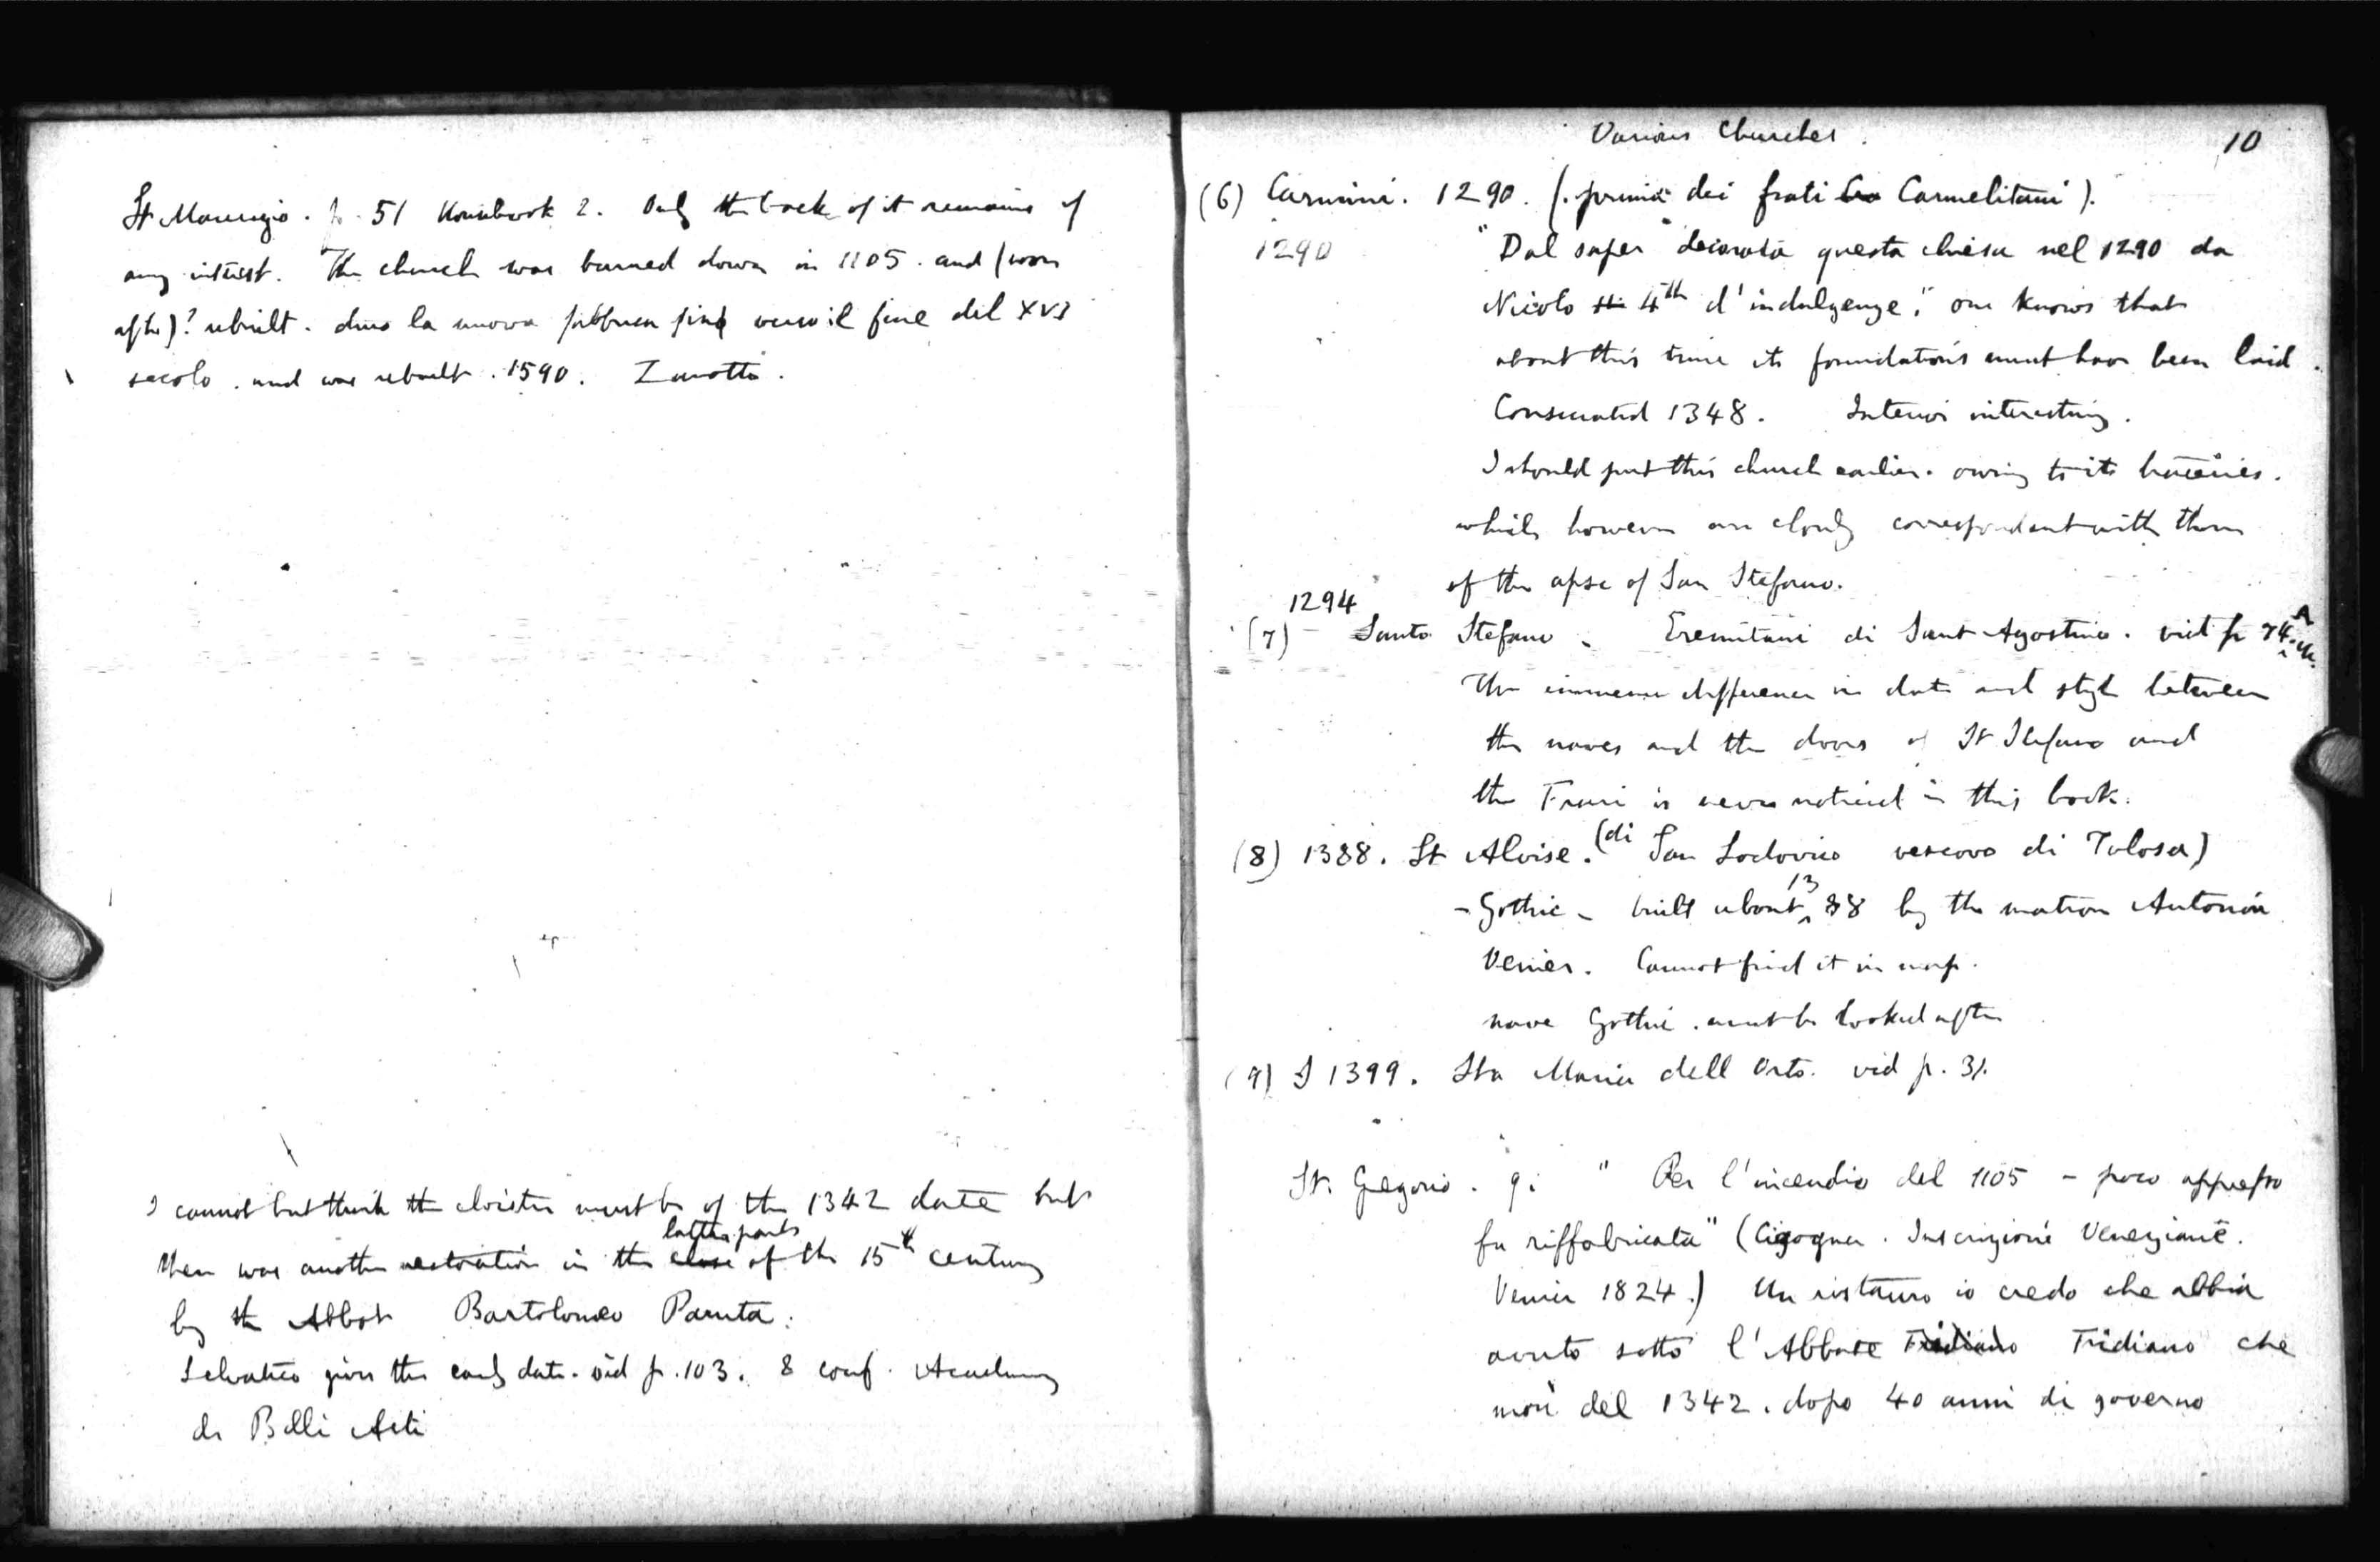 St Maurizio. p. 51 Housebook 2. Only the back of it remains of
any interest. The church was burned down in 1105. and (soon
after)? rebuilt. duro la nuova fabbrica fino verso il fine del XVI
secolo. and was rebuilt. 1590. Zanotto.
I cannot but think the cloister must be of the 1342 date but
there was another restoration in the close latter parts of the 15th century
by the Abbot Bartolomeo Paruta.
Selvatico gives the early date. vid p. 103. & conf. Academy
di Belli Arti
Various Churches. 10
(6) Carmini. 1290. (. prima dei frati Ca Carmelitani).
1290 "Dal saper decorata questa chiesa nel 1290 da
Nicolo the 4th d'indulgenze," one knows that
about this time its foundations must have been laid.
Consecrated 1348. Interior interesting.
I should put this church earlier. owing to its traceries.
which however are closely correspondent with those
of the apse of San Stefano.
1294
(7) – Santo Stefano. Eremitani di Sant Agostino. vid p 74.
The immense difference in date and style between
the naves and the doors of St Stefano and
the Frari is never noticed in this book.
(8) 1388. St Alvise. (di San Lodovico vescovo di Tolosa)
– Gothic – built about 1388 by the matron Antonia
Venier. Cannot find it in map.
nave Gothic. must be looked after
(9) S 1399. Sta Maria dell Orto. vid p. 31.
St. Gregorio. 9. " Per l'incendio del 1105 – poco appresso
fu riffabricata" (Cigogna. Inscrizioni Veneziane.
Venier 1824.) Un ristauro io credo che abbia
avuto sotto l'Abbate Fridiano Fridiano che
morì del 1342. dopo 40 anni di governo